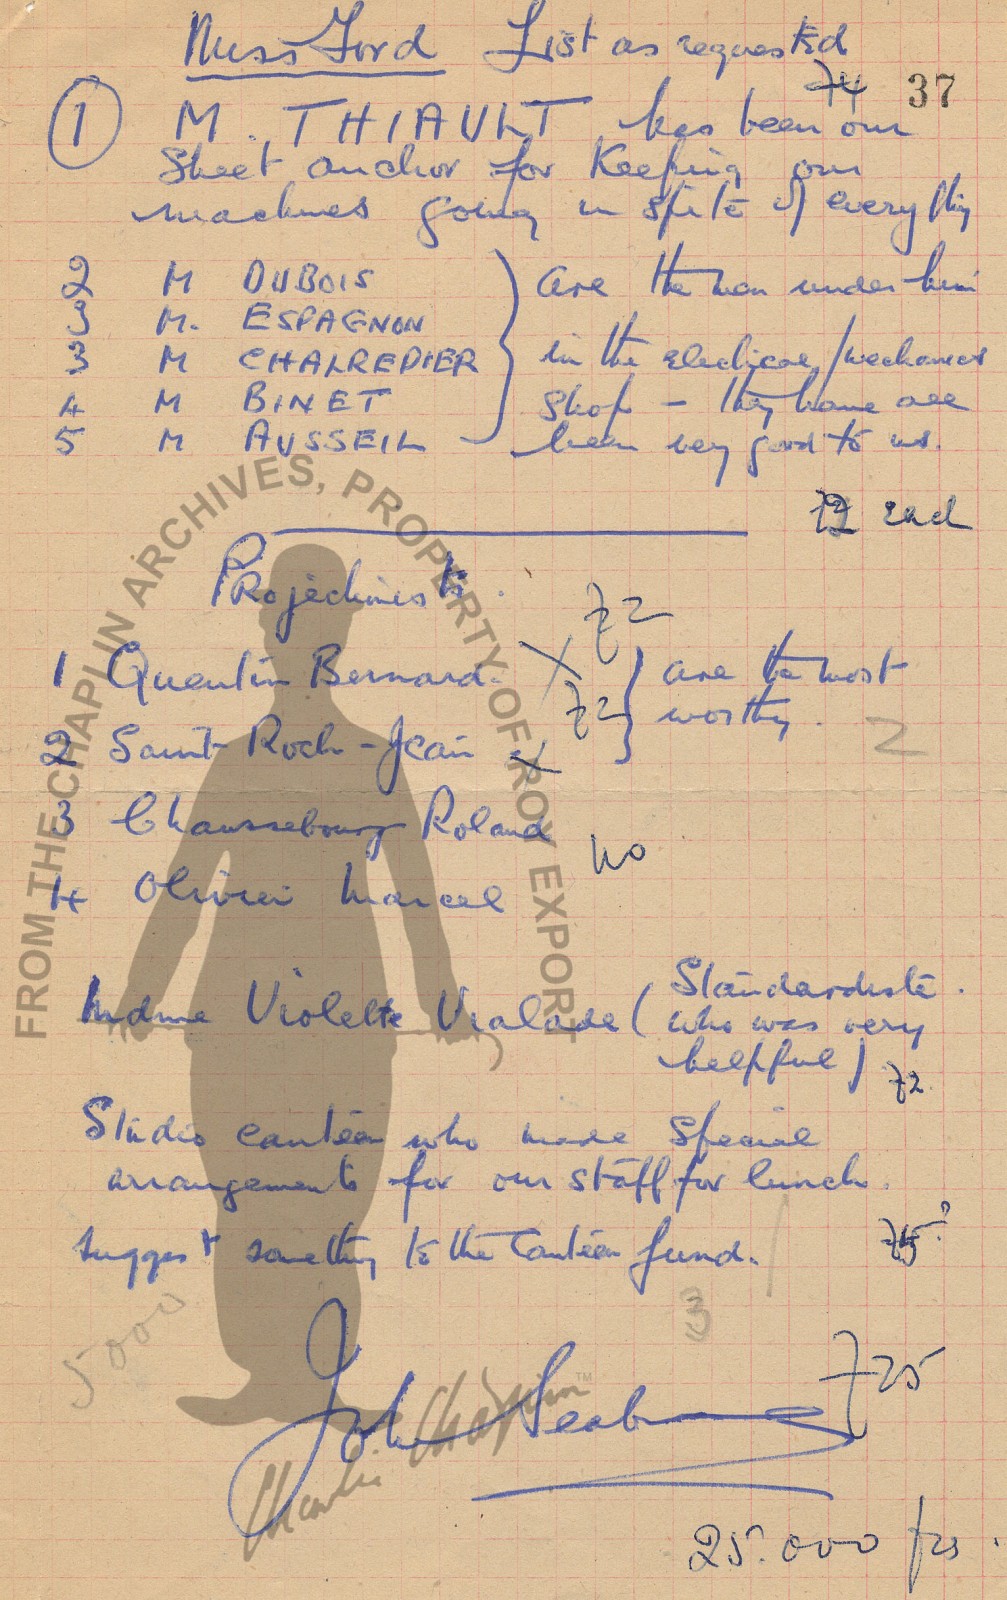 Miss Ford List as requested
£4 37
1 M. THIAULT has been our
Sheet anchor for keeping our
machines going in spite of everything
2 M DUBOIS
3 M. ESPAGNON
3 M CHALREPIER
4 M BINET
5 M AUSSEIL
are the men under him
in the electrical/mechanics
shop - they have all
been very good to us.
£2 each
Projectionists.
£2
1 Quentin Bernard. X
are the most
£2
worthy.
2
2 Saint-Roch-Jean X
3 Chaussebourg Roland
No
4 Olivier Marcel
Mdme Violette Vialade (Standardiste.
who was very
helpful)
£2.
Studio canteen who made special
arrangements for our staff for lunch.
Suggest something to the Canteen fund.
£5?
5000
3
£25
John Seabourne
25.000 frs.
FROM THE CHAPLIN ARCHIVES, PROPERTY OF ROY EXPORT
Charlie Chaplin™